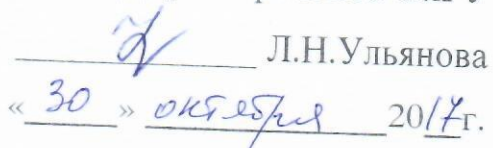 Л.Н.Ульянова
«30» октября 2017г.